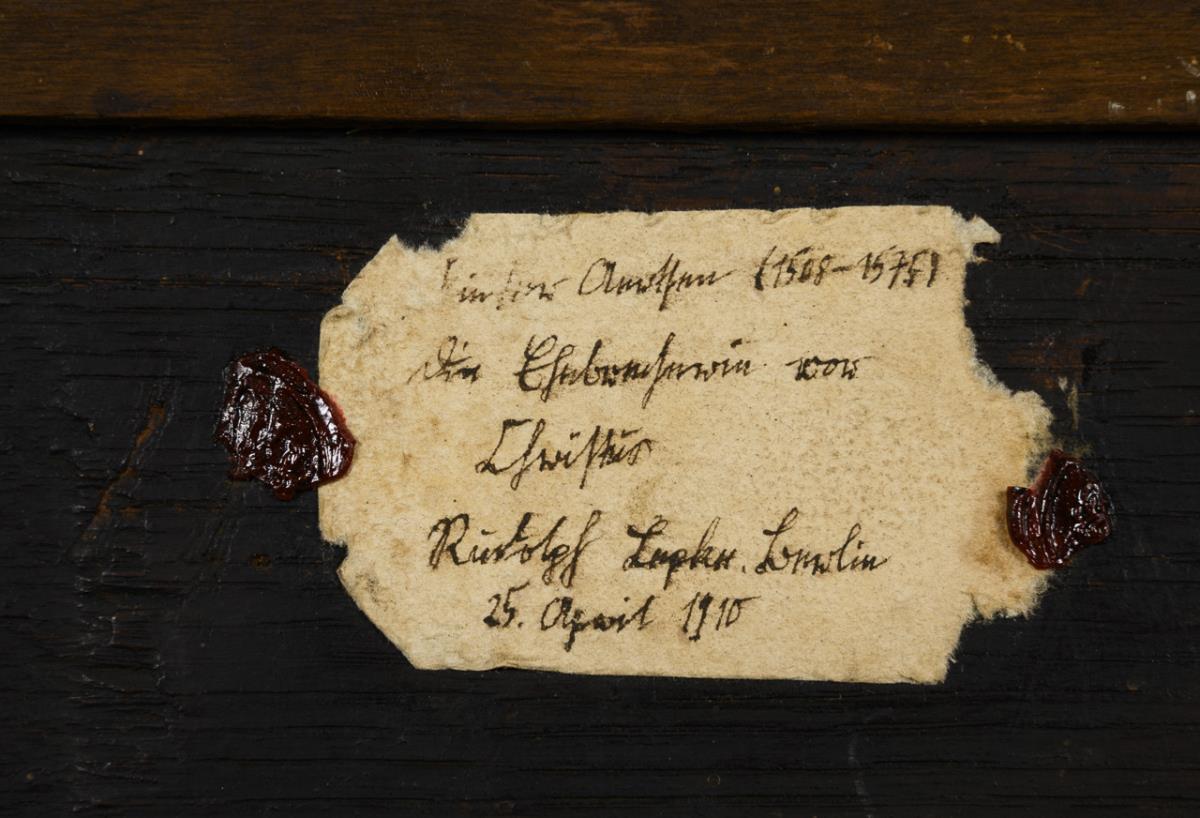 Pieter Aertsen (1508-1575)
Die Ehebrecherin vor
Christus
Rudolph Lepke. Berlin
25. April 1910